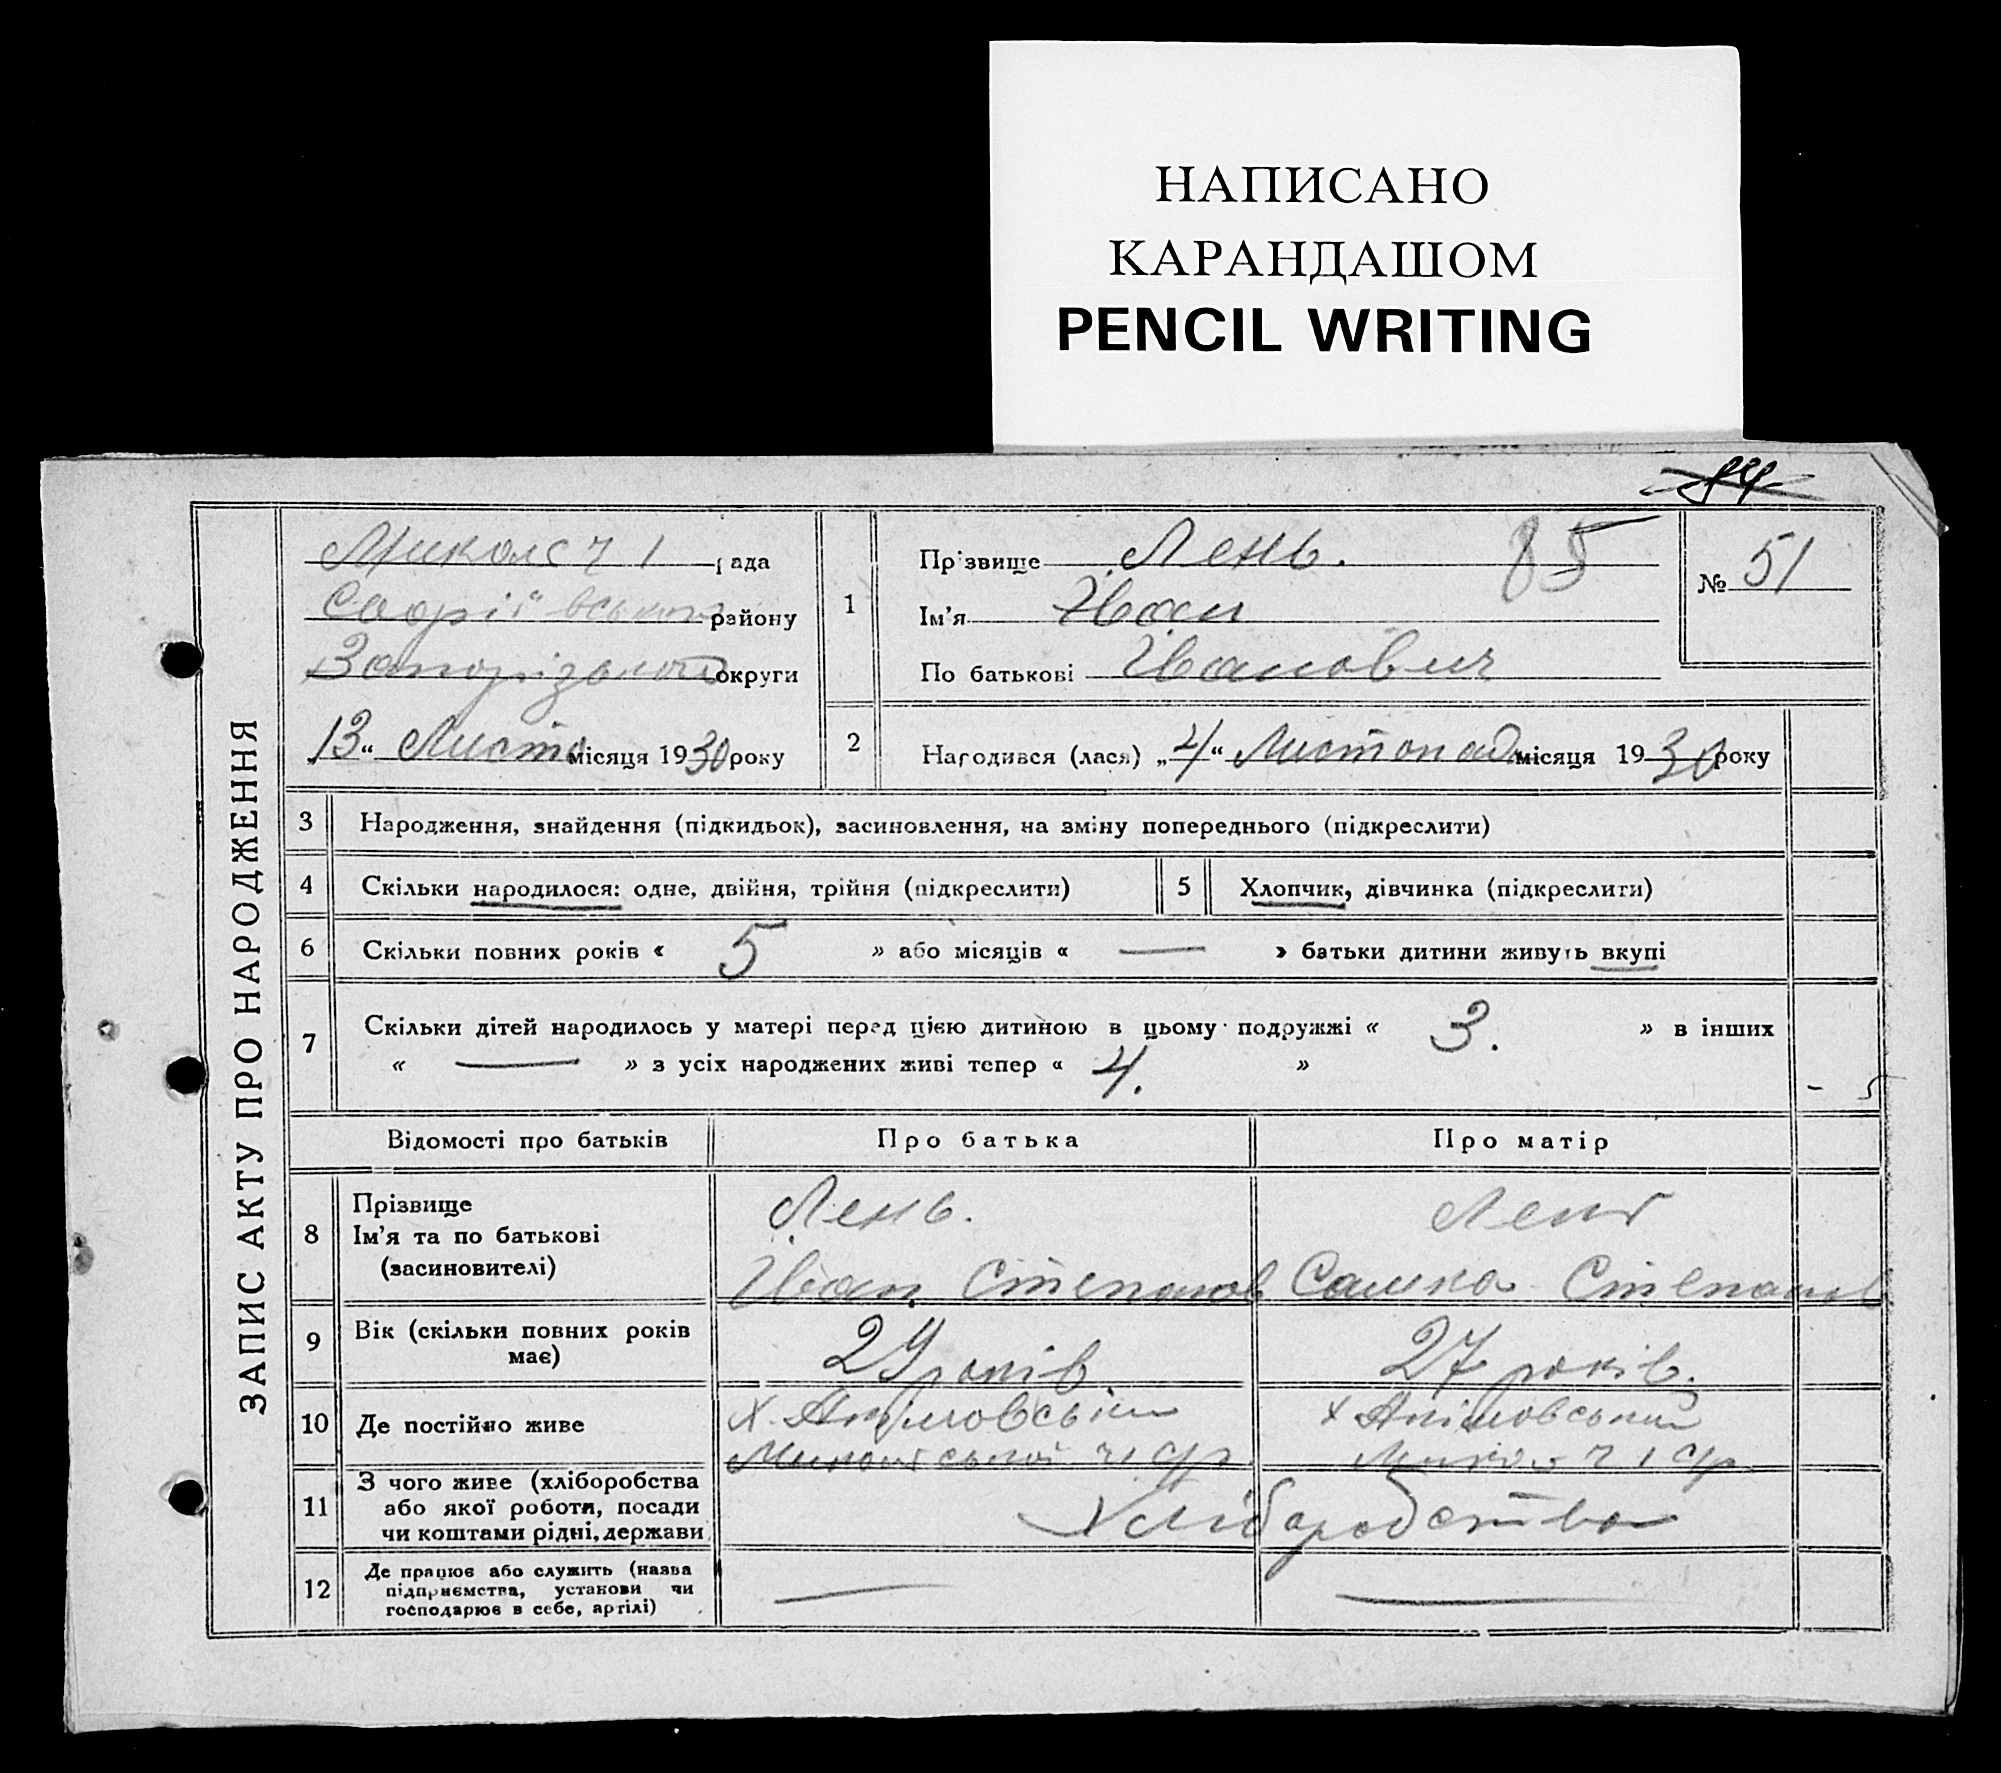 НАПИСАНО
КАРАНДАШОМ
PENCIL WRITING
ЗАПИС АКТУ ПРО НАРОДЖЕННЯ
рада
району
округи
13 " Листо місяця 1930 року
1
Прізвище Лень. 85
Ім'я Іван
По батькові Іванович
№ 51
2 Народився (лася) „ 4 " Листопад місяця 1930 року
3 Народження, знайдення (підкидьок), засиновлення, на зміну попереднього (підкреслити)
4 Скільки народилося: одне, двійня, трійня (підкреслити) 5 Хлопчик, дівчинка (підкреслити)
6 Скільки повних років « 5 » або місяців « — » батьки дитини живуть вкупі
7 Скільки дітей народилось у матері перед цією дитиною в цьому подружжі « 3. » в інших
« — » з усіх народжених живі тепер « 4. »
- 5
Відомості про батьків Про батька Про матір
8 Прізвище
Ім'я та по батькові
(засиновителі)
Лень.
Іван Степанов
Лень
Сашка Степанов
9 Вік (скільки повних років
має)
29 років
27 років.
10 Де постійно живе
х. Якимовський
х Якімовський
11 З чого живе (хліборобства
або якої роботи, посади
чи коштами рідні, держави
Хліборобство
12 Де працює або служить (назва
підприємства, установи чи
господарює в себе, артілі)